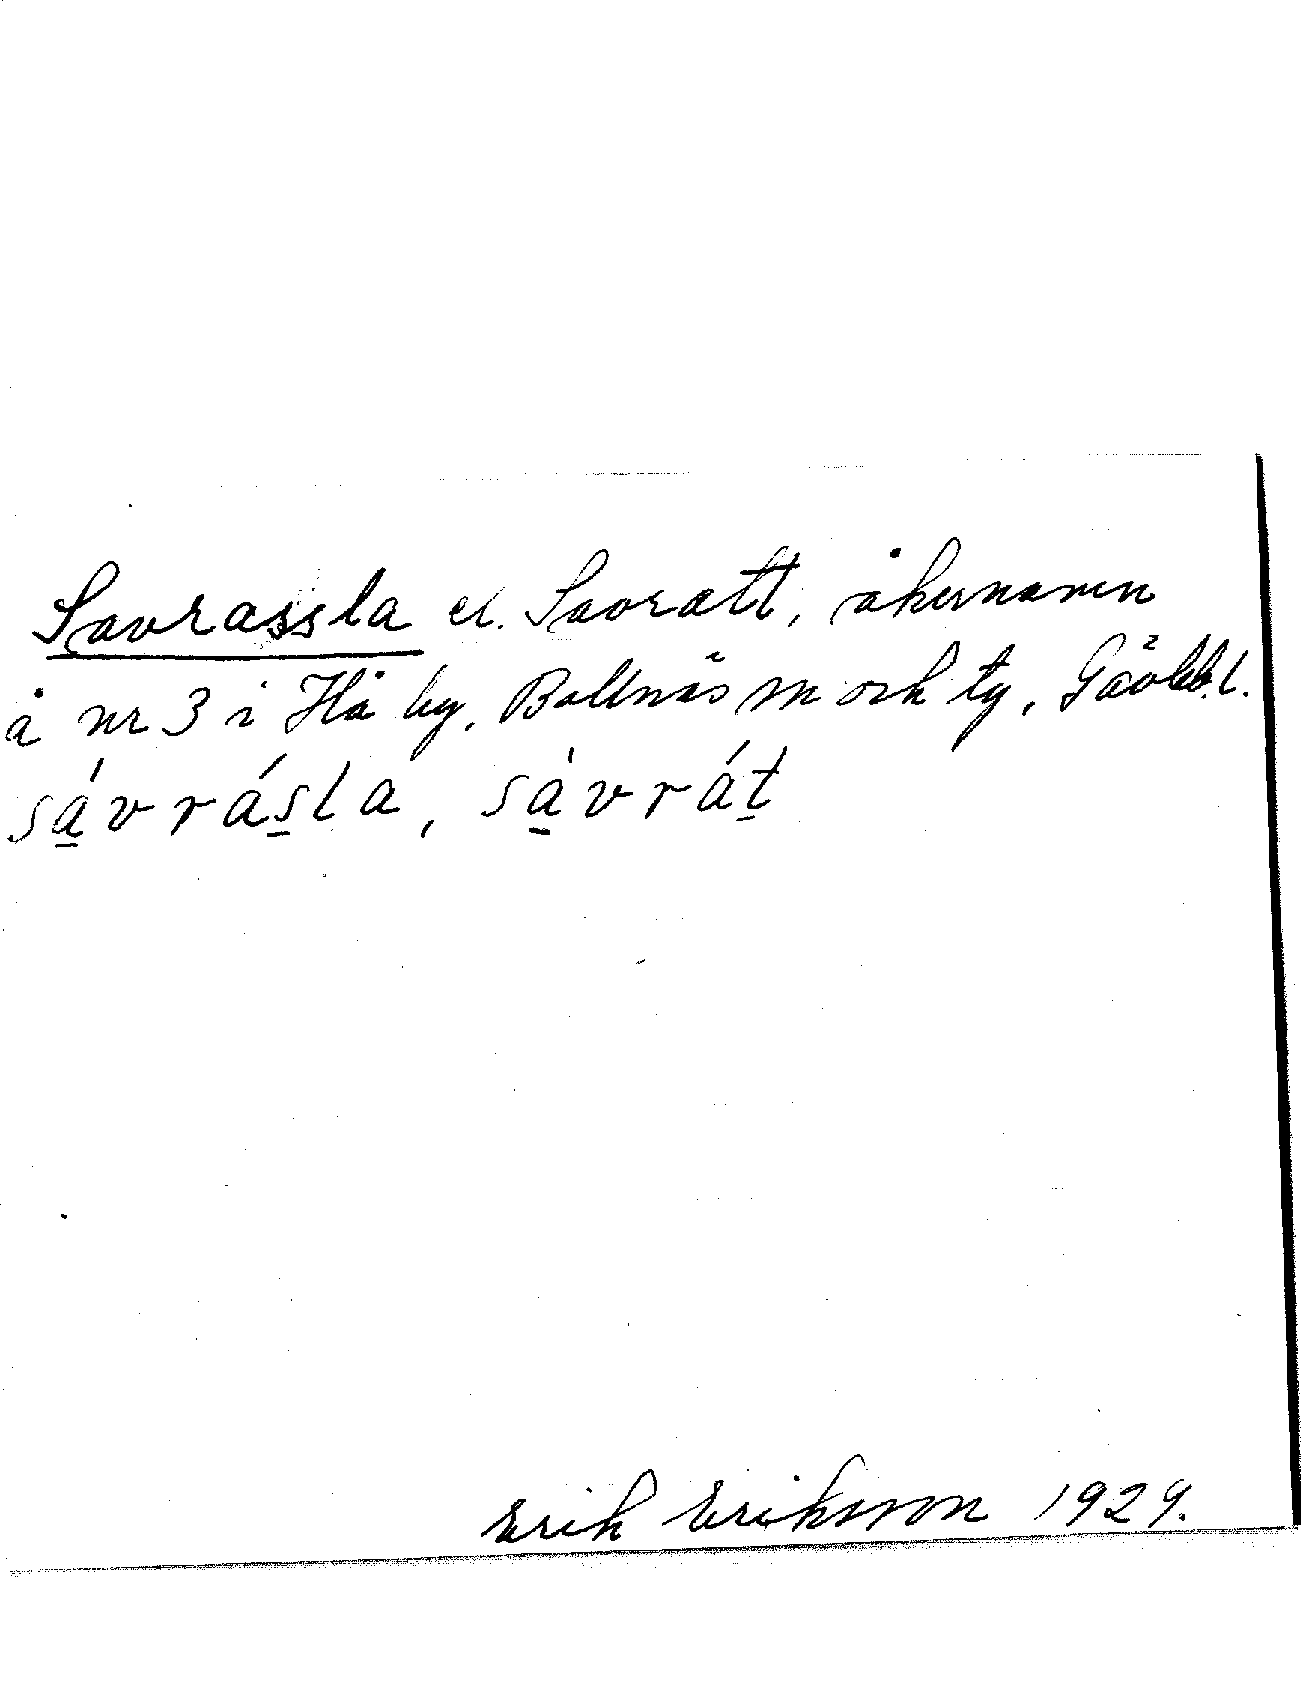 Savrassla el. Savratt, åkernamn
å nr 3 i Hå by, Bollnäs sn och tg, Gävleb. l.
sa̱vrás̱la, sa̱vráṯ
Erik Eriksson 1929.